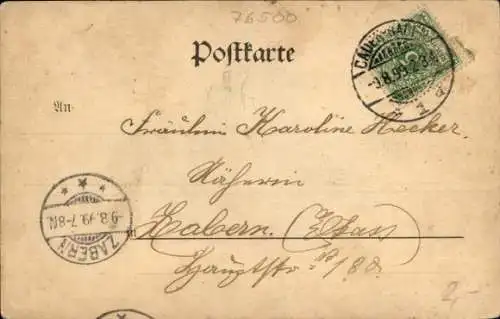 76500
Postkarte
-9.8.99
An
Fräulein Karoline Hecker
Näherin
in Zabern. (Elsass)
Hauptstr. 188
9.8.99.7-8N.
ZABERN
2,-